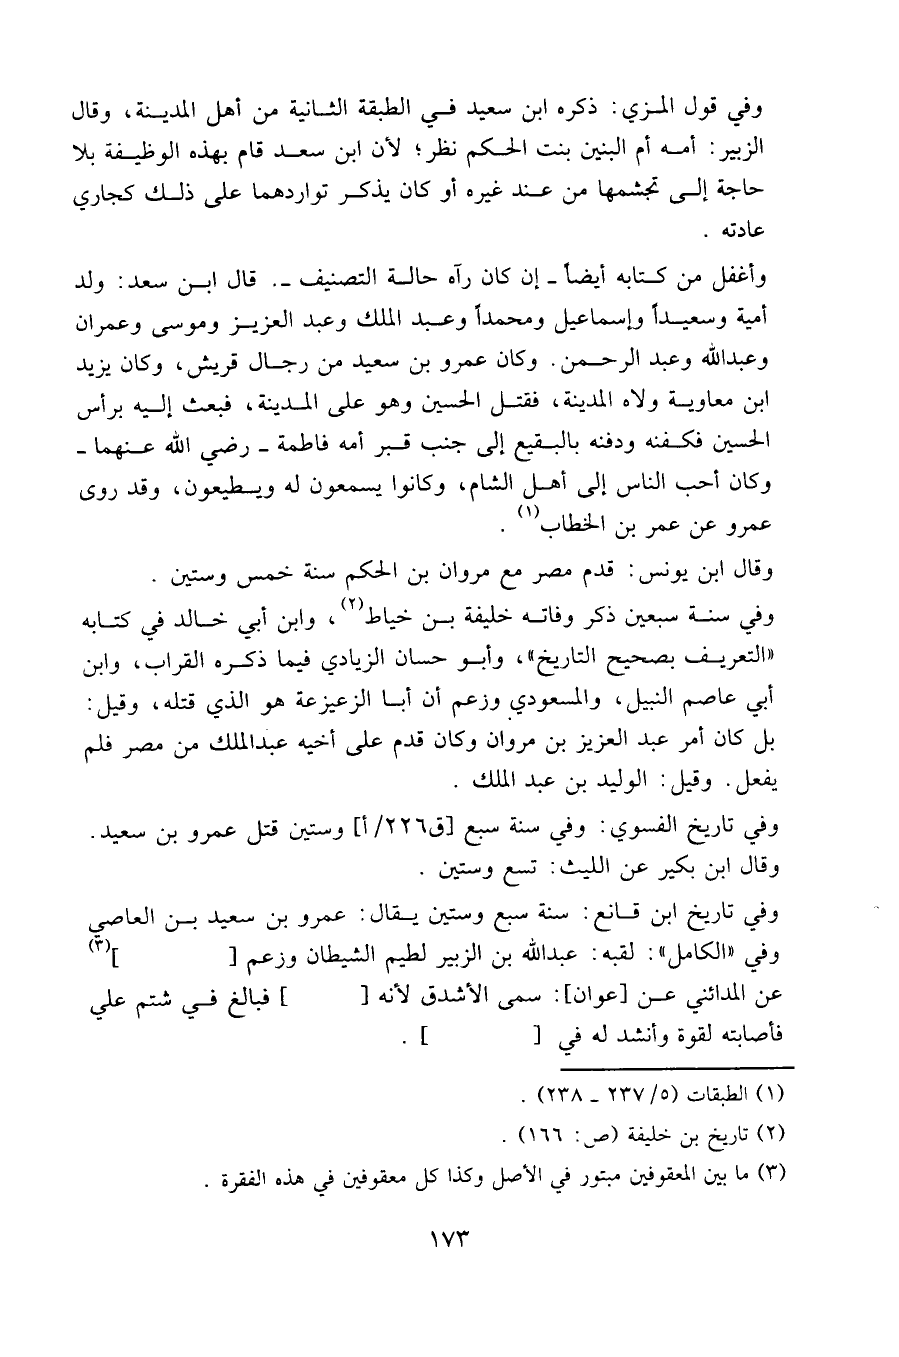 وفي قول المزي: ذكره ابن سعيد في الطبقة الثانية من أهل المدينة، وقال
الزبير: أمه أم البنين بنت الحكم نظر؛ لأن ابن سعد قام بهذه الوظيفة بلا
حاجة إلى تجشمها من عند غيره أو كان يذكر تواردهما على ذلك كجاري
عادته .
وأغفل من كتابه أيضاً ـ إن كان رآه حالة التصنيف ـ. قال ابن سعد: ولد
أمية وسعيداً وإسماعيل ومحمداً وعبد الملك وعبد العزيز وموسى وعمران
وعبدالله وعبد الرحمن. وكان عمرو بن سعيد من رجال قريش، وكان يزيد
ابن معاوية ولاه المدينة، فقتل الحسين وهو على المدينة، فبعث إليه برأس
الحسين فكفنه ودفنه بالبقيع إلى جنب قبر أمه فاطمة ـ رضي الله عنهما ـ
وكان أحب الناس إلى أهل الشام، وكانوا يسمعون له ويطيعون، وقد روى
عمرو عن عمر بن الخطاب(١) .
وقال ابن يونس: قدم مصر مع مروان بن الحكم سنة خمس وستين .
وفي سنة سبعين ذكر وفاته خليفة بن خياط(٢)، وابن أبي خالد في كتابه
«التعريف بصحيح التاريخ»، وأبو حسان الزيادي فيما ذكره القراب، وابن
أبي عاصم النبيل، والمسعودي وزعم أن أبا الزعيزعة هو الذي قتله، وقيل:
بل كان أمر عبد العزيز بن مروان وكان قدم على أخيه عبدالملك من مصر فلم
يفعل. وقيل: الوليد بن عبد الملك .
وفي تاريخ الفسوي: وفي سنة سبع [ق٢٢٦/أ] وستين قتل عمرو بن سعيد.
وقال ابن بكير عن الليث: تسع وستين .
وفي تاريخ ابن قانع: سنة سبع وستين يقال: عمرو بن سعيد بن العاصي
وفي «الكامل»: لقبه: عبدالله بن الزبير لطيم الشيطان وزعم [ ](٣)
عن المدائني عن [عوان]: سمى الأشدق لأنه [ ] فبالغ في شتم علي
فأصابته لقوة وأنشد له في [ ] .
(١) الطبقات (٥/ ٢٣٧ ـ ٢٣٨) .
(٢) تاريخ بن خليفة (ص: ١٦٦) .
(٣) ما بين المعقوفين مبتور في الأصل وكذا كل معقوفين في هذه الفقرة .
١٧٣